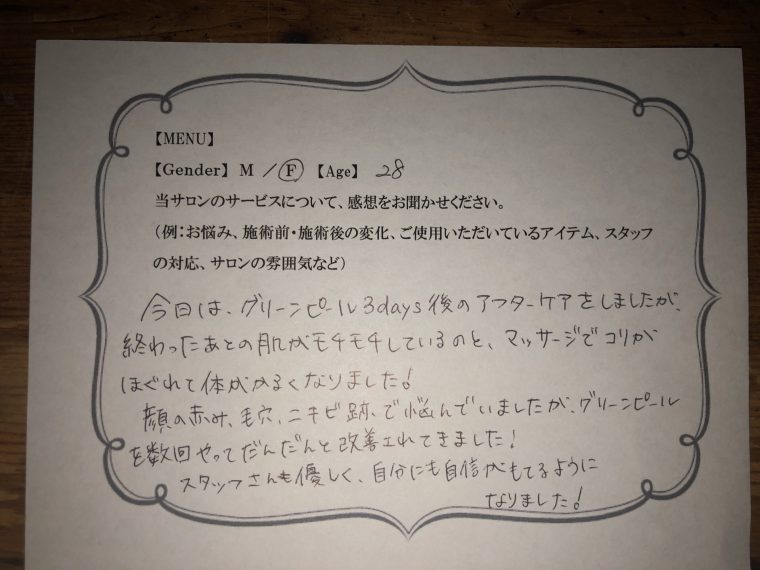 【MENU】
【Gender】 M / F 【Age】 28
当サロンのサービスについて、感想をお聞かせください。
（例：お悩み、施術前・施術後の変化、ご使用いただいているアイテム、スタッフ
の対応、サロンの雰囲気など）
今日は、グリーンピール3days後のアフターケアをしましたが、
終わったあとの肌がモチモチしているのと、マッサージでコリが
ほぐれて体がかるくなりました！
顔の赤み、毛穴、ニキビ跡、で悩んでいましたが、グリーンピール
を数回やってだんだんと改善されてきました！
スタッフさんも優しく、自分にも自信がもてるように
なりました！